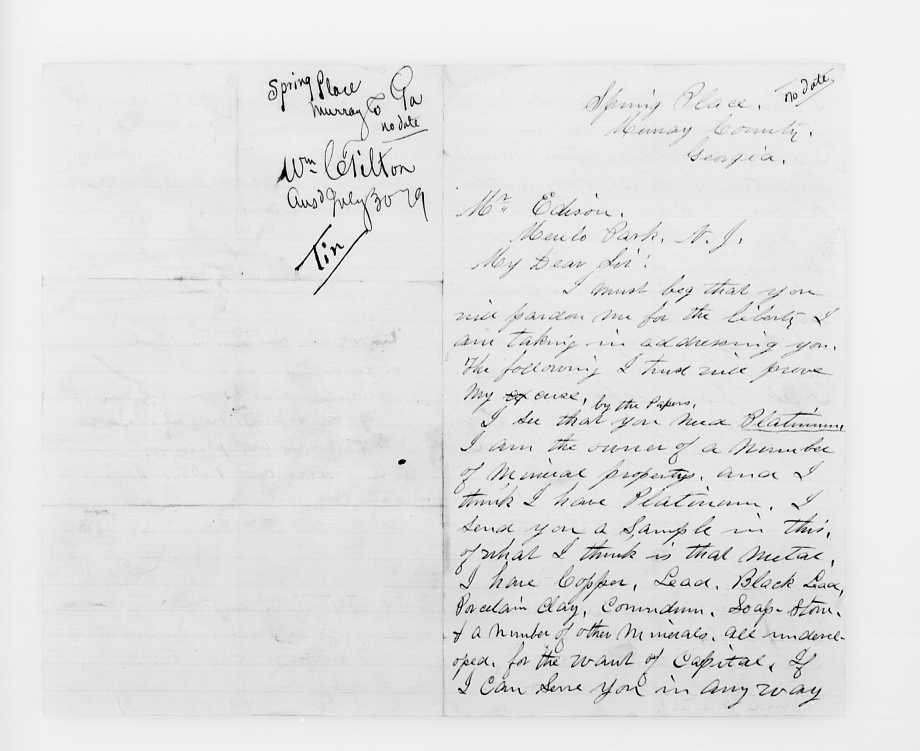 Spring Place
Murray Co Ga
no date
Wm C Tilton
Ansd July 30 79
Tin
no date
Spring Place.
Murray County.
Georgia.
Mr Edison.
Menlo Park. N. J.
My Dear Sir!
I must beg that you
will pardon me for the liberty I
am taking in addressing you.
The following I trust will prove
my excuse,
by the Papers.
I see that you need Platinum
I am the owner of a number
of mineral property. and I
think I have Platinum. I
send you a sample in this.
of what I think is that metal.
I have Copper, Lead. Black Lead,
Porcelain Clay, Corundum. Soap-Stone.
& a number of other minerals. all undevel-
oped. for the want of Capital. If
I can serve you in any way